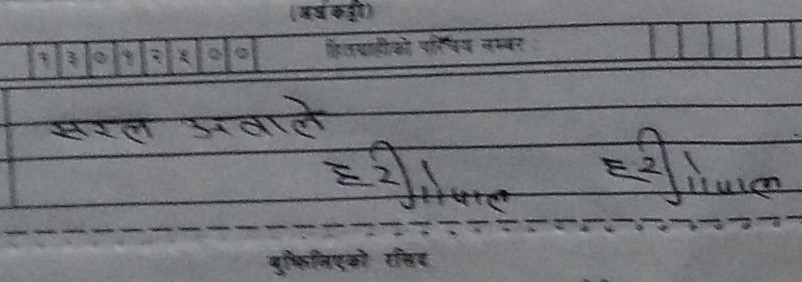 (बर्षकट्टी)
१३०१२५०० हितग्राहीको परिचय नम्बर :
सरल अवाले
हरीगोपाल हरीगोपाल
बुझिलिएको रसिद